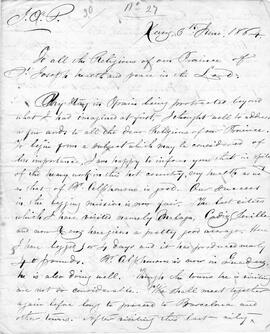 J. P. 30 No 27
Xerez, 6th June, 1864.
To all the Religious of our Province of
St. Joseph health and peace in the Lord.
My stay in Spain being protracted beyond
what I had imagined at first, I thought well to address
a few words to all the dear Religious of our Province.
To begin from a subject which may be considered of
less importance, I am happy to inform you that in spite
of the heavy work in this hot country, my health as well
as that of Br. Alphonsus is good. Our success
in the begging mission is now fair. The last cities
which I have visited namely Malaga, Cadiz, Seville
and now Xerez have given a pretty good average. Here
I have begged 3 or 4 days and it has produced nearly
40 pounds. Br. Alphonsus is now in
he is also doing well. Though the towns he is visiting
are not so considerable. We shall meet together
again before long to proceed to Barcelona and
other towns. After visiting this last city,